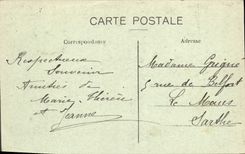 CARTE POSTALE
Correspondance
Adresse
Respectueux
Souvenir
Amitiés de
Marie-Thérèse
et Jeanne
Madame Grégne
5 rue de Belfort
Le Mans
Sarthe